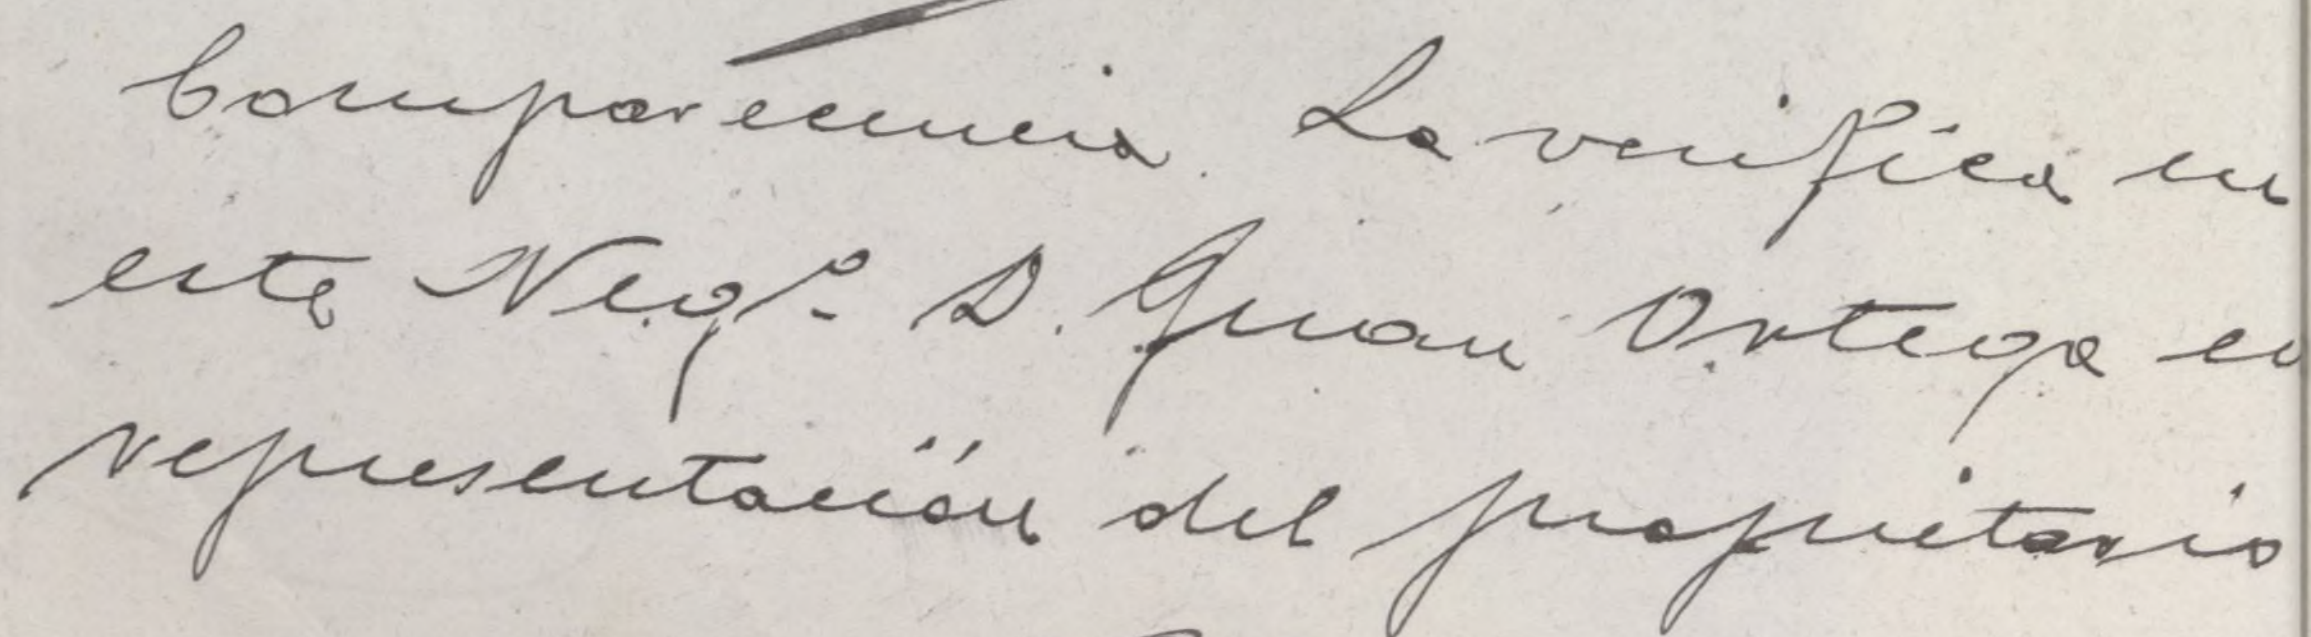 Comparecencia. La verifica en
este Negº. D. Juan Ortega en
representación del propietario